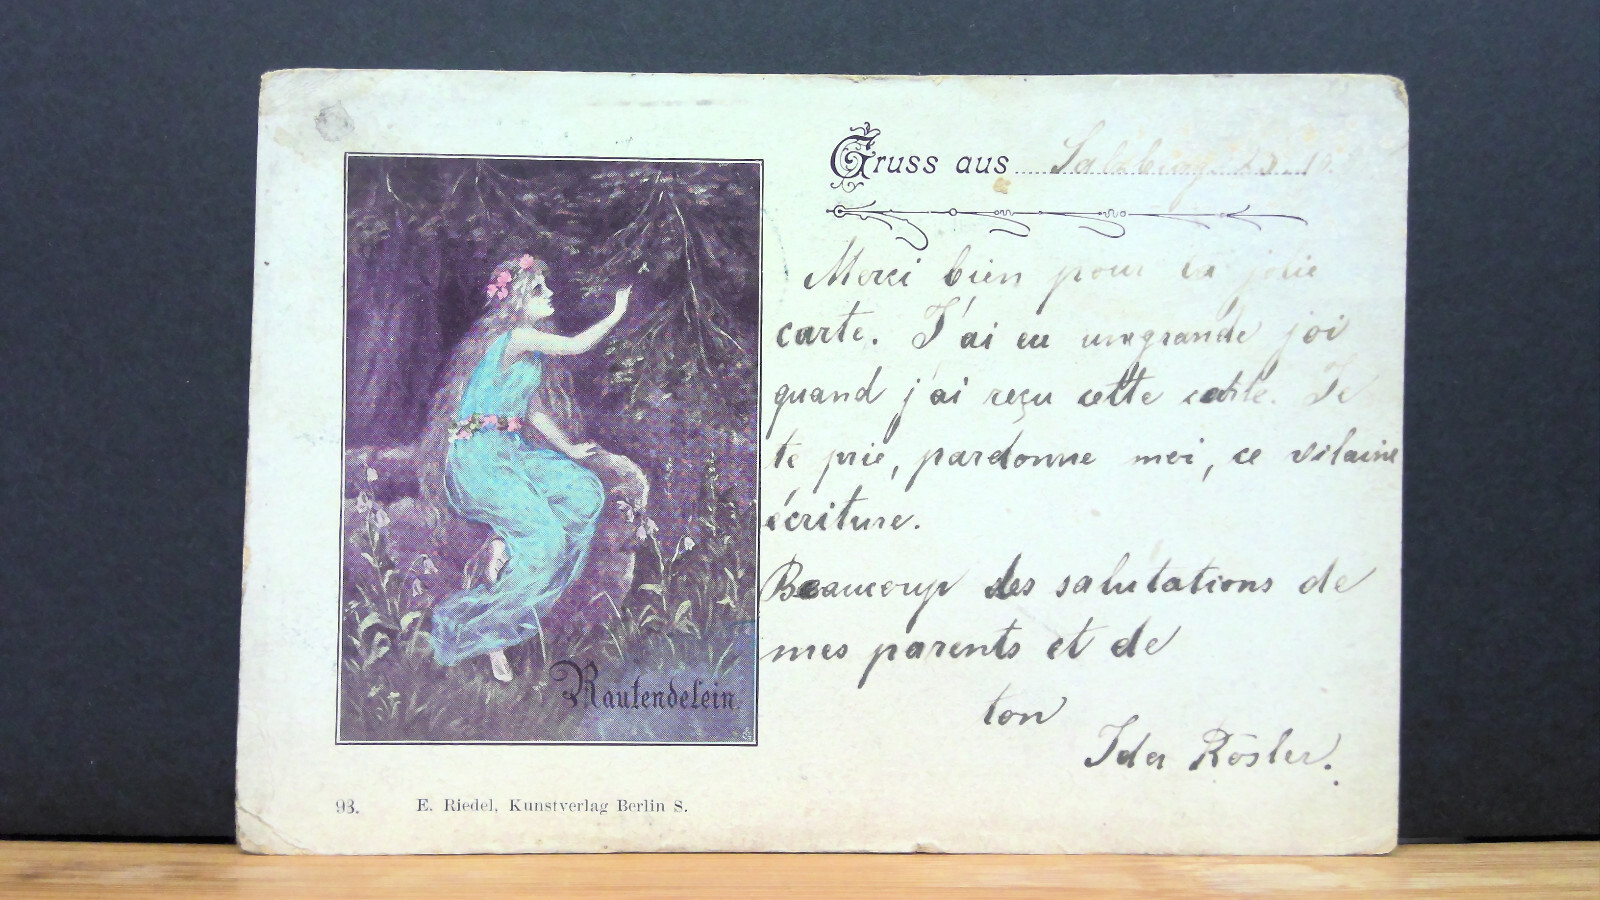 Gruss aus Salzburg 23. 10.
Merci bien pour la jolie
carte. J'ai eu une grande joi
quand j'ai reçu cette carte. Je
te prie, pardonne moi, ce vilaine
écriture.
Beaucoup des salutations de
mes parents et de
ton
Ida Rösler.
Rautendelein.
93. E. Riedel, Kunstverlag Berlin S.